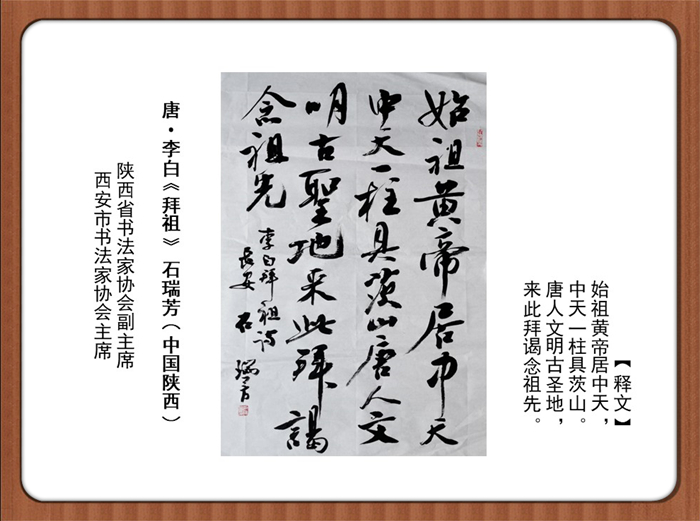 【释文】
始祖黄帝居中天，
中天一柱具茨山。
唐人文明古圣地，
来此拜谒念祖先。
始祖黄帝居中天
中天一柱具茨山唐人文
明古聖地来此拜謁
念祖先
李白拜祖诗
長安 石瑞芳
唐·李白《拜祖》 石瑞芳（中国陕西）
陕西省书法家协会副主席
西安市书法家协会主席